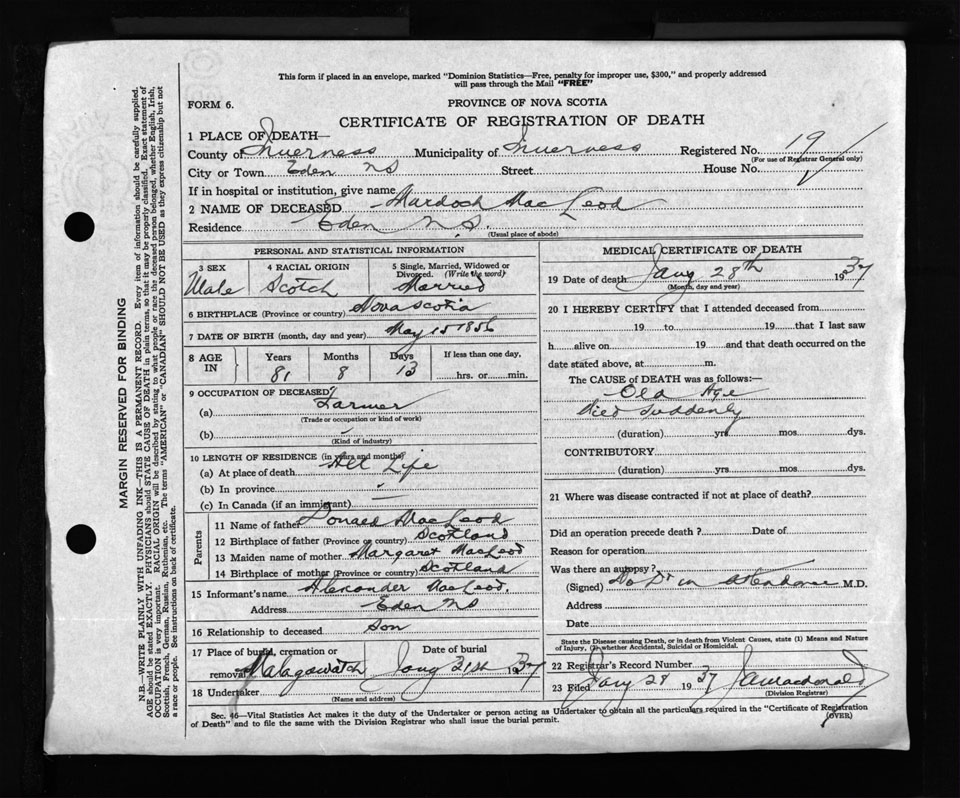 This form if placed in an envelope, marked "Dominion Statistics—Free, penalty for improper use, $300," and properly addressed
will pass through the Mail "FREE"
FORM 6.
PROVINCE OF NOVA SCOTIA
CERTIFICATE OF REGISTRATION OF DEATH
1 PLACE OF DEATH—
County of Inverness Municipality of Inverness Registered No. 19
(For use of Registrar General only)
City or Town Eden NS Street House No.
If in hospital or institution, give name
2 NAME OF DECEASED Murdoch MacLeod
Residence Eden N.S.
(Usual place of abode)
PERSONAL AND STATISTICAL INFORMATION
3 SEX Male
4 RACIAL ORIGIN Scotch
5 Single, Married, Widowed or
Divorced. (Write the word)
Married
6 BIRTHPLACE (Province or country) Nova Scotia
7 DATE OF BIRTH (month, day and year) May 15 1856
8 AGE IN Years 81 Months 8 Days 13 If less than one day,
hrs. or min.
9 OCCUPATION OF DECEASED
(a) Farmer
(Trade or occupation or kind of work)
(b)
(Kind of industry)
10 LENGTH OF RESIDENCE (in years and months)
(a) At place of death All Life
(b) In province
(c) In Canada (if an immigrant)
Parents
11 Name of father Donald MacLeod
12 Birthplace of father (Province or country) Scotland
13 Maiden name of mother Margaret MacLeod
14 Birthplace of mother (Province or country) Scotland
15 Informant's name Alexander MacLeod.
Address Eden NS
16 Relationship to deceased Son
17 Place of burial, cremation or
removal Malagawatch
Date of burial
Jany 31st 37
18 Undertaker
(Name and address)
MEDICAL CERTIFICATE OF DEATH
19 Date of death Jany 28th 1937
(Month, day and year)
20 I HEREBY CERTIFY that I attended deceased from
19 to 19 that I last saw
h alive on 19 and that death occurred on the
date stated above, at m.
The CAUSE OF DEATH was as follows:—
Old Age
Died Suddenly
(duration) yrs mos dys.
CONTRIBUTORY
(duration) yrs mos dys.
21 Where was disease contracted if not at place of death?
Did an operation precede death ? Date of
Reason for operation
Was there an autopsy?
(Signed) No Dr in attendance M.D.
Address
Date
State the Disease causing Death, or in death from Violent Causes, state (1) Means and Nature
of Injury, (2) whether Accidental, Suicidal or Homicidal.
22 Registrar's Record Number
23 Filed Jany 28 1937 JA Macdonald
(Division Registrar)
Sec. 46—Vital Statistics Act makes it the duty of the Undertaker or person acting as Undertaker to obtain all the particulars required in the "Certificate of Registration
of Death" and to file the same with the Division Registrar who shall issue the burial permit.
(OVER)
MARGIN RESERVED FOR BINDING
N.B.—WRITE PLAINLY WITH UNFADING INK—THIS IS A PERMANENT RECORD. Every item of information should be carefully supplied.
AGE should be stated EXACTLY. PHYSICIANS should STATE CAUSE OF DEATH in plain terms, so that it may be properly classified. Exact statement of
OCCUPATION is very important. RACIAL ORIGIN will be described by stating to what people or race the deceased person belonged, whether English, Irish,
Scottish, French, German, Russian, Ruthenian, etc. The terms "AMERICAN" or "CANADIAN" SHOULD NOT BE USED as they express citizenship but not
a race or people. See instructions on back of certificate.